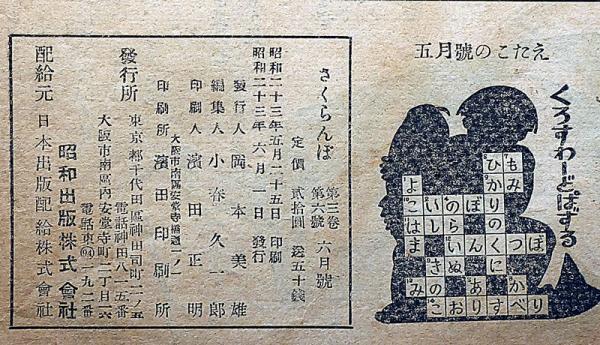 五月號のこたえ
くろすわーどぱずる
もみ
ひかりのくに
よこはま
さくらんぼ 第三卷 第六號 六月號
定價 貳拾圓 送五十錢
昭和二十三年五月二十五日 印刷
昭和二十三年六月一日 發行
發行人 岡本美雄
編集人 小春久一郎
印刷人 濱田正明
大阪市南區安堂寺橋通一ノ一
印刷所 濱田印刷所
發行所 東京都千代田區神田司町二ノ五
電話神田八一五番
大阪市南區内安堂寺町二丁目一六
電話東(94)一九二番
昭和出版株式會社
配給元 日本出版配給株式會社